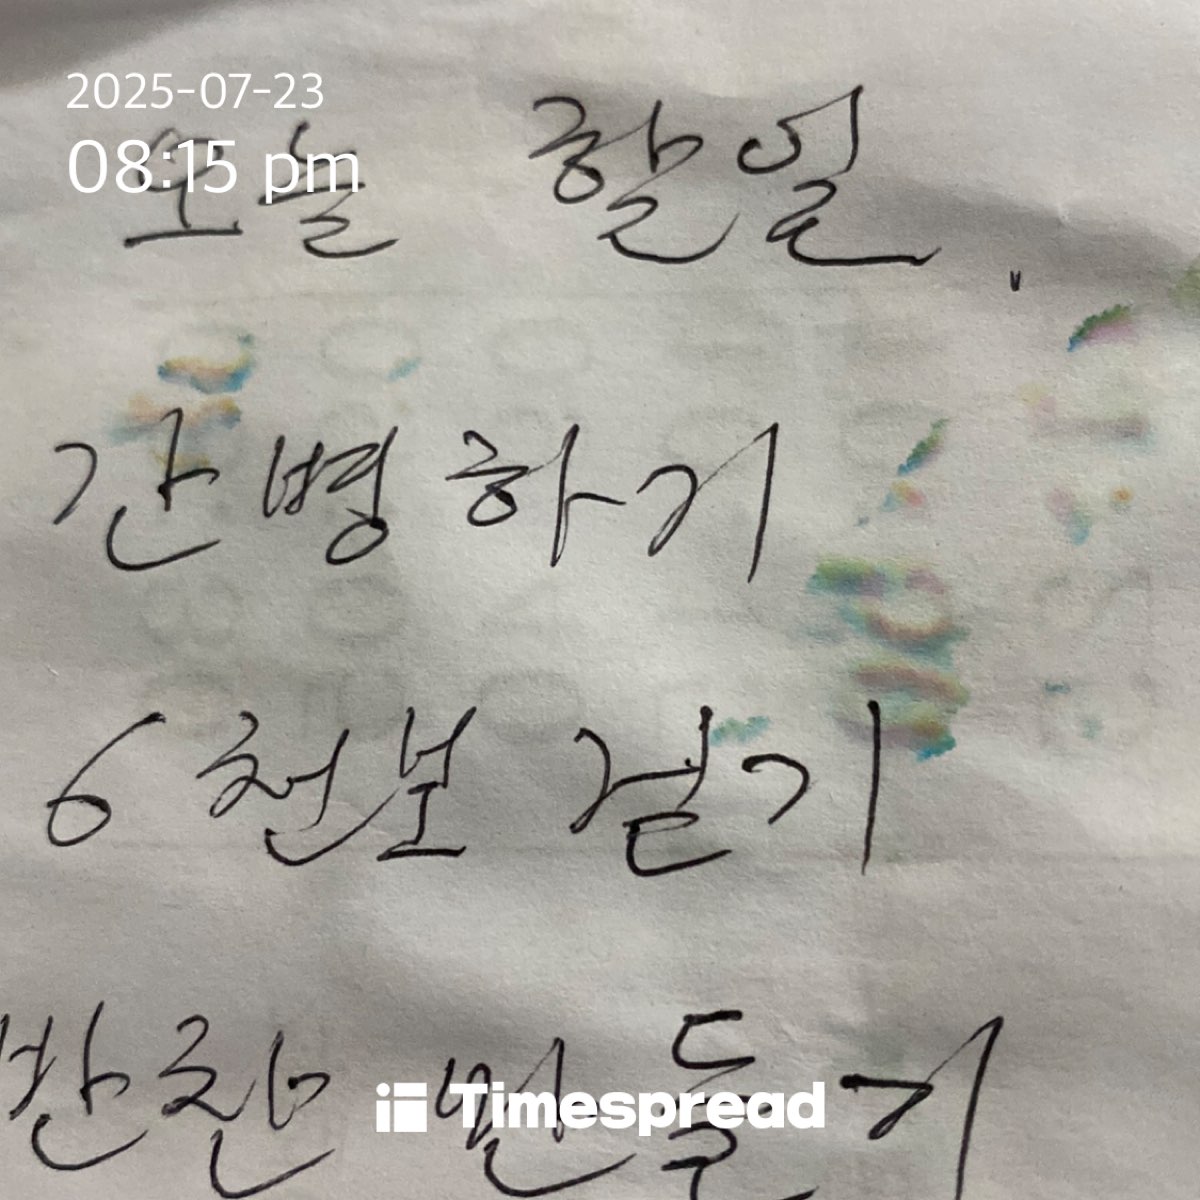 2025-07-23
08:15 pm
오늘 할일
간병하기
6천보 걷기
반찬 만들기
Timespread